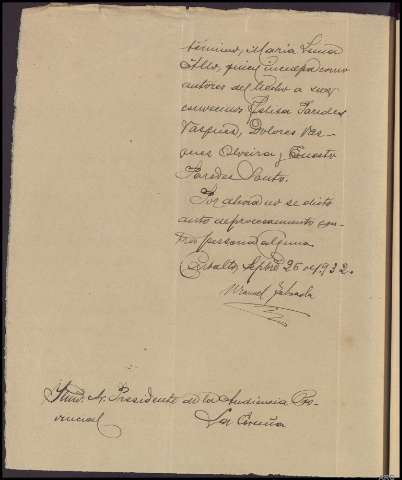 término, Maria
Allo, quien inculpa como
autores del hecho a sus
convecinos Felisa Paredes
Vasquez, Dolores Vas-
quez Olveira y Ernesto
Paredes Santo.
Por ahora no se dictó
auto de procesamiento con-
tra persona alguna.
Septbre 26 de 1932.
Manuel
Iltmo. Sr. Presidente de la Audiencia Pro-
vincial La Coruña